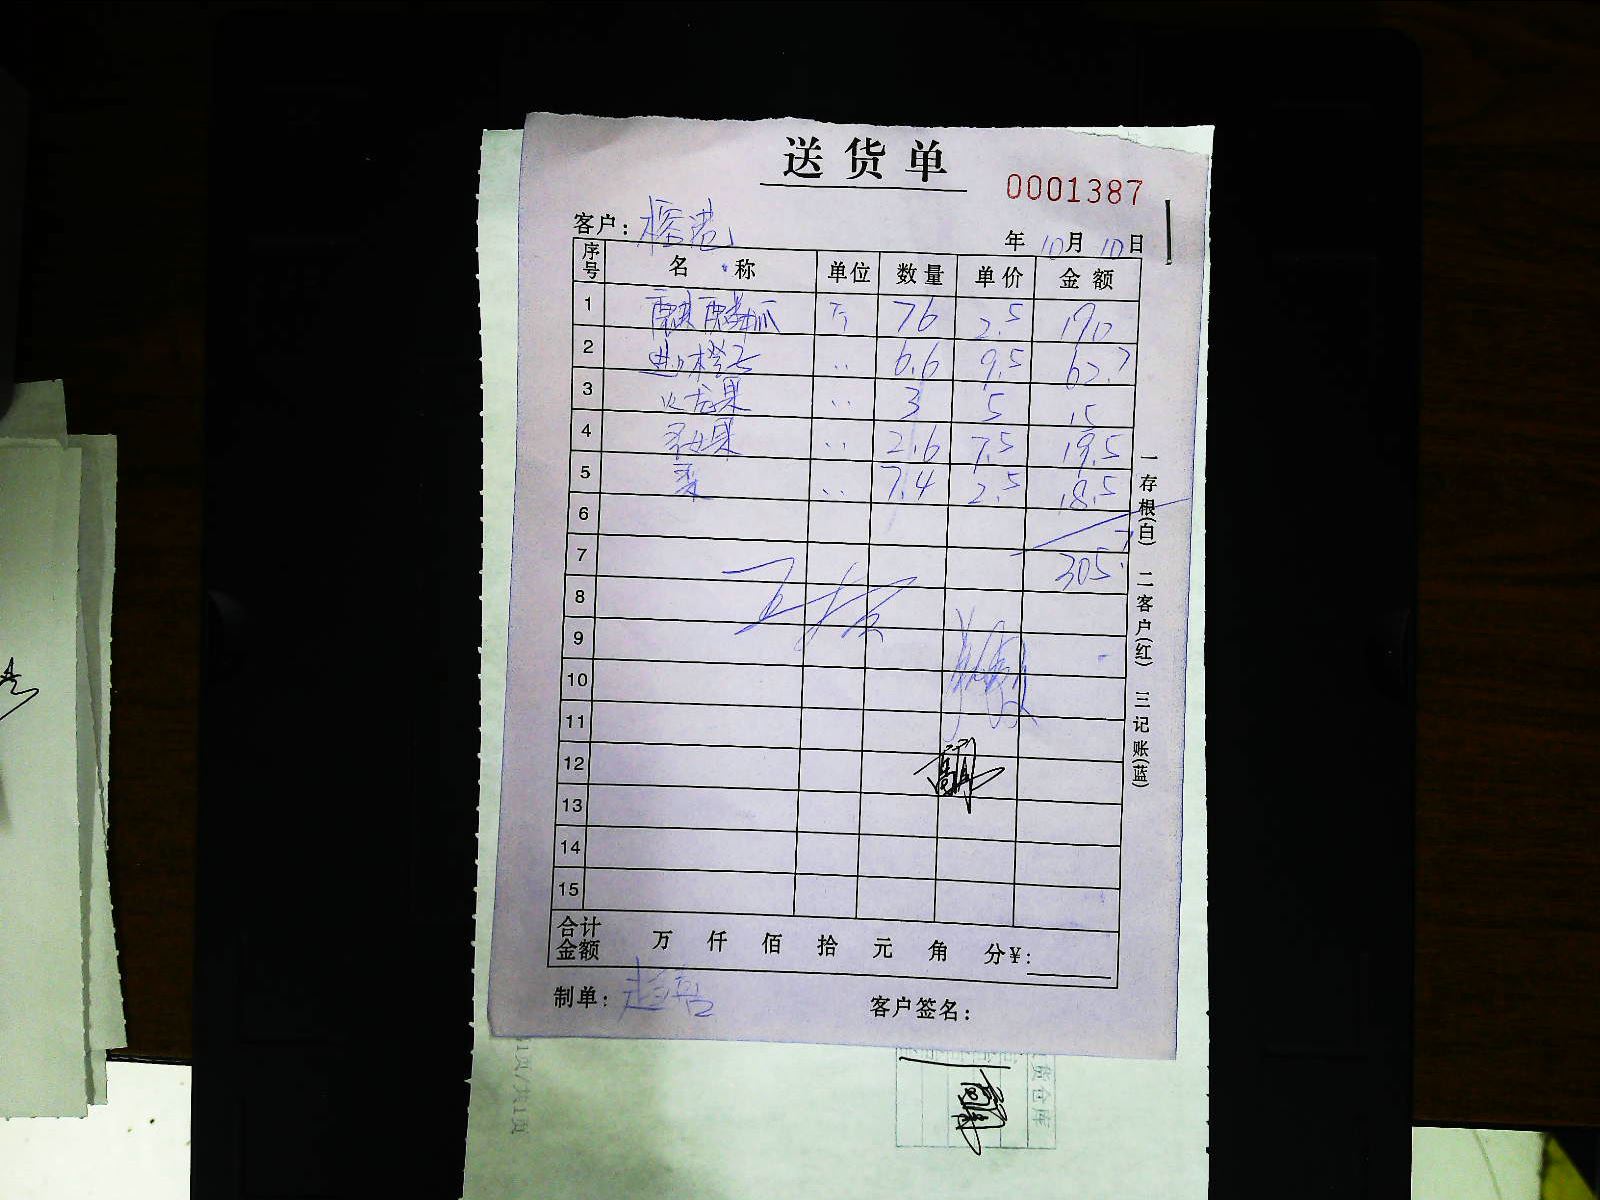 送货单
0001387
客户: 榕港
年 10月 10日
序号 名称 单位 数量 单价 金额
1 麒麟瓜 斤 76 2.5 190
2 进口橙子 .. 6.6 9.5 62.7
3 火龙果 .. 3 5 15
4 .. 2.6 7.5 19.5
5 梨 .. 7.4 2.5 18.5
6
7 305.7
8
9
10
11
12
13
14
15
合计金额 万 仟 佰 拾 元 角 分¥:
制单: 客户签名:
一存根(白) 二客户(红) 三记账(蓝)